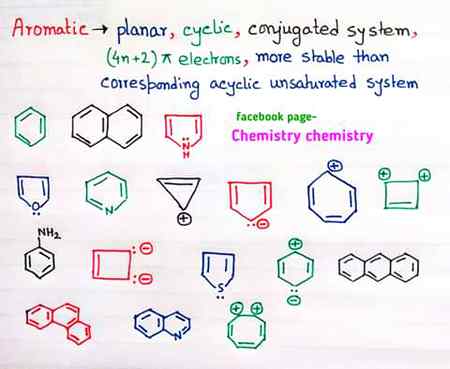 Aromatic → planar, cyclic, conjugated system,
(4n+2) π electrons, more stable than
corresponding acyclic unsaturated system
facebook page-
Chemistry chemistry
N
H
⊕
O
N
⊕
⊖
⊕
⊕
NH₂
⊖
⊖
S
⊕
⊖
N
⊕ ⊕